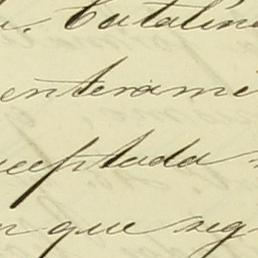 a. Catalin
enterame
ceptada
n que seg